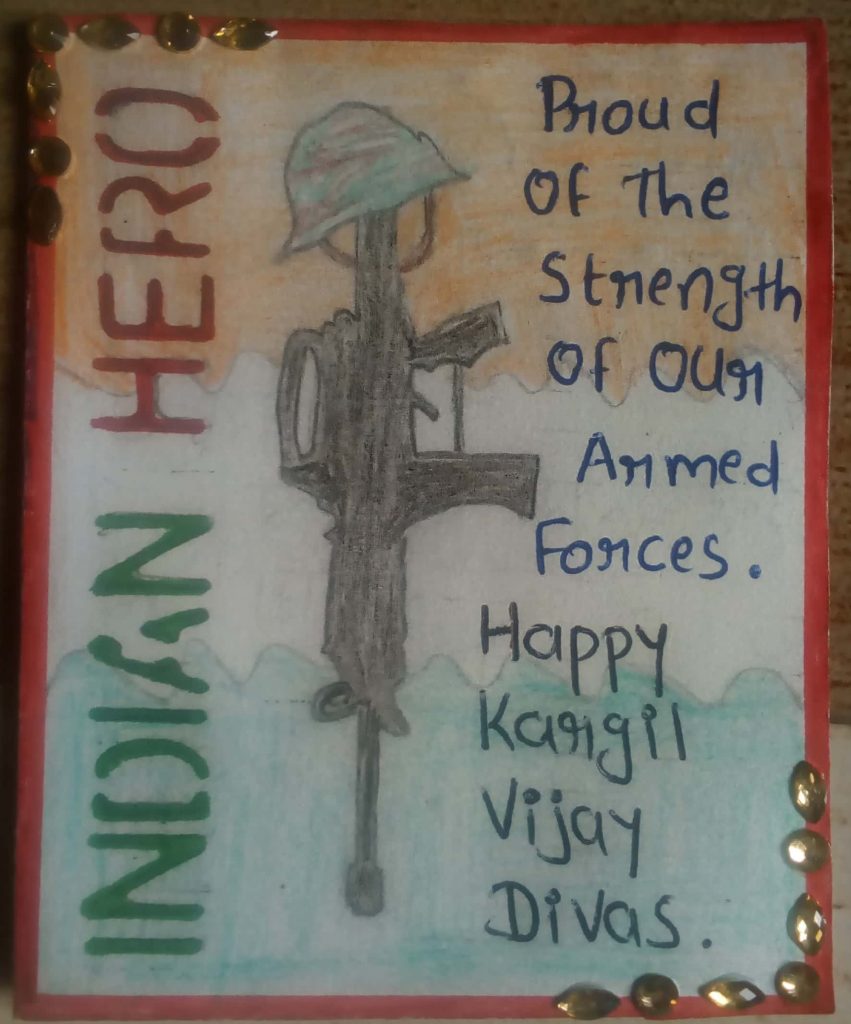 INDIAN HERO
Proud
Of The
Strength
Of Our
Armed
Forces.
Happy
Kargil
Vijay
Divas.